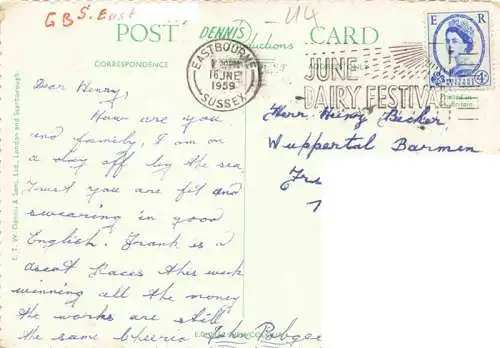 GB S. East
U4
POST DENNIS Productions CARD
CORRESPONDENCE
E R
EASTBOURNE
16 JNE
1959
SUSSEX
JUNE
DAIRY FESTIVAL
Printed in
Britain
E. T. W. Dennis & Sons, Ltd., London and Scarborough.
Dear Henry,
How are you
and family, I am on
a day off by the sea
trust you are fit and
swearing in good
English. Frank is a
ascot Races this week
winning all the money
the works are still
the same Cheerio
Herr. Heinz Becker,
Wuppertal Barmen